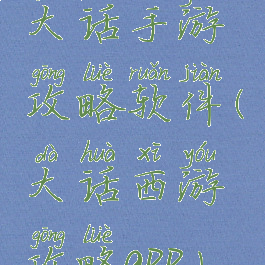 大话手游
gōng lüè ruǎn jiàn
攻略软件(
dà huà xī yóu
大话西游
gōng lüè
攻略OPP)